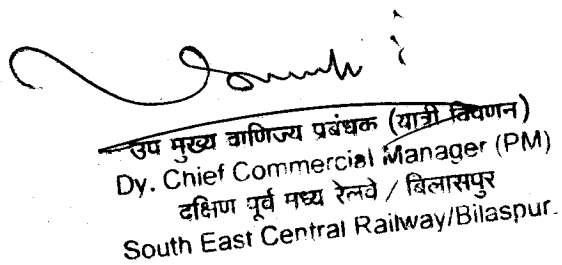 उप मुख्य वाणिज्य प्रबंधक (यात्री विपणन)
Dy. Chief Commercial Manager (PM)
दक्षिण पूर्व मध्य रेलवे / बिलासपुर
South East Central Railway/Bilaspur.